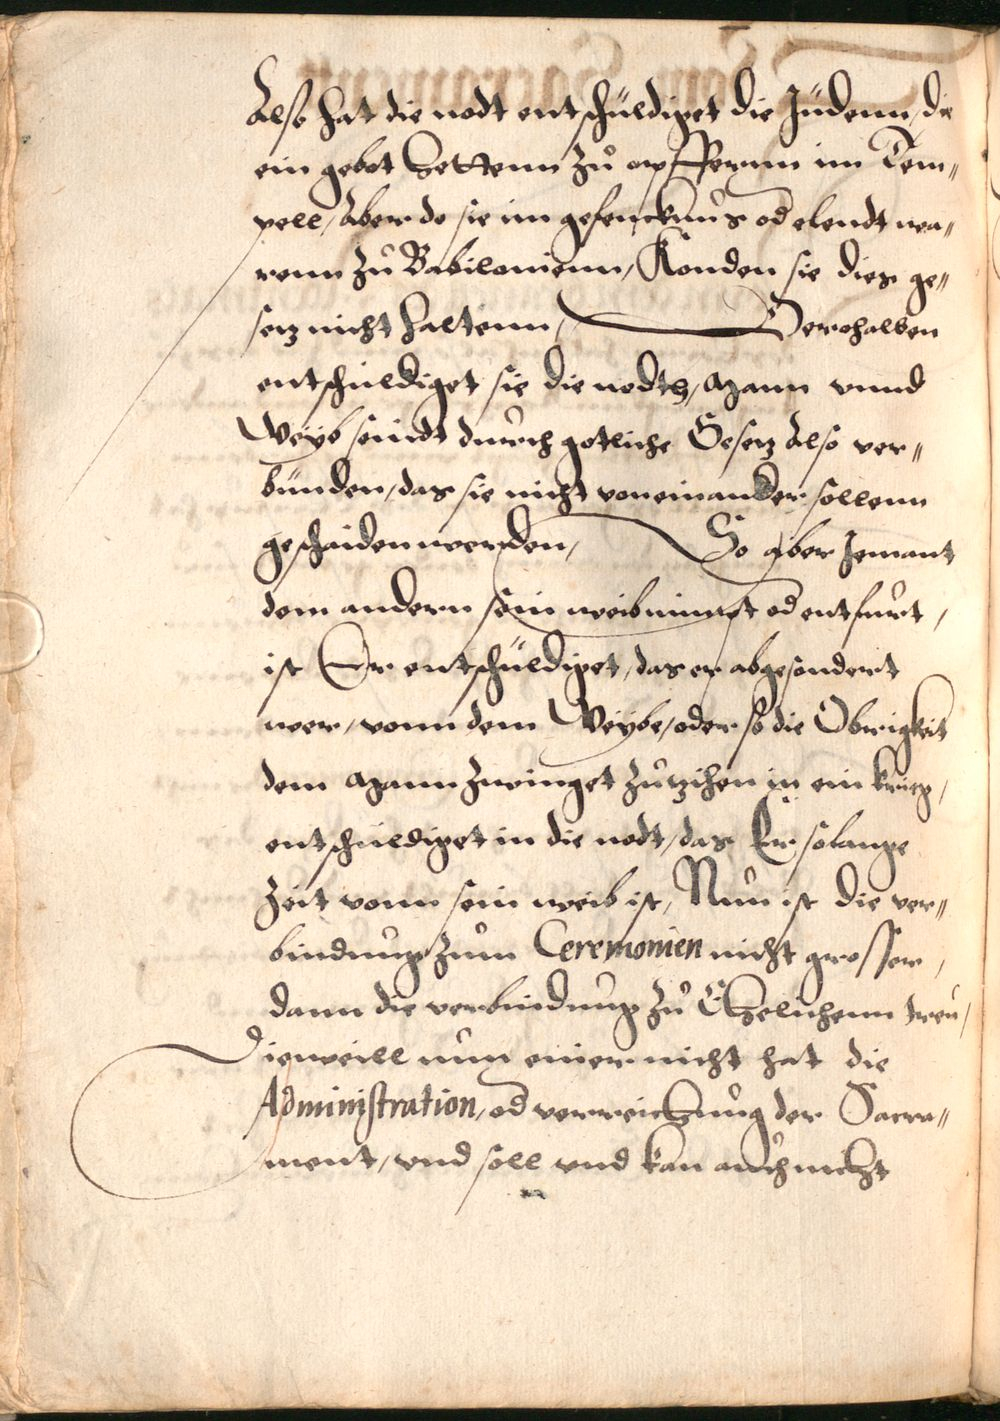 Also hat die nodt entschüldiget die Jüdenn, die
ein gebot Hettenn zů opffernn im Tem„
pell, Aber do sie im gefencknus od elendt wa„
renn zů Babilonienn, Konden sie dies ge„
setz nicht haltenn, Derohalben
entschüldiget sie die nodts, Mann vnnd
Weyb seindt důrch gotliche Gesetz Also ver„
bünden, das sie nicht von einander sollenn
geschaiden werden, So aber Jemant
dem andern sein weib nimpt od entfůrt,
ist Er entschüldiget, das er abgesondert
wer, vonn dem Weybe, oder so die Obrigkeit
dem Mann zwinget zů zihen in ein krieg,
entschuldiget in die nodt, das Er so lange
Zeit vonn sein weib ist, Nůn ist die ver„
bindung zům Ceremonien nicht grosser,
dann die verbindung zů Ehelichenn treu,
Dieweill nun einer nicht hat die
Administration, od verreichůng der Sacra„
ment, vnd soll vnd kan aůch nicht